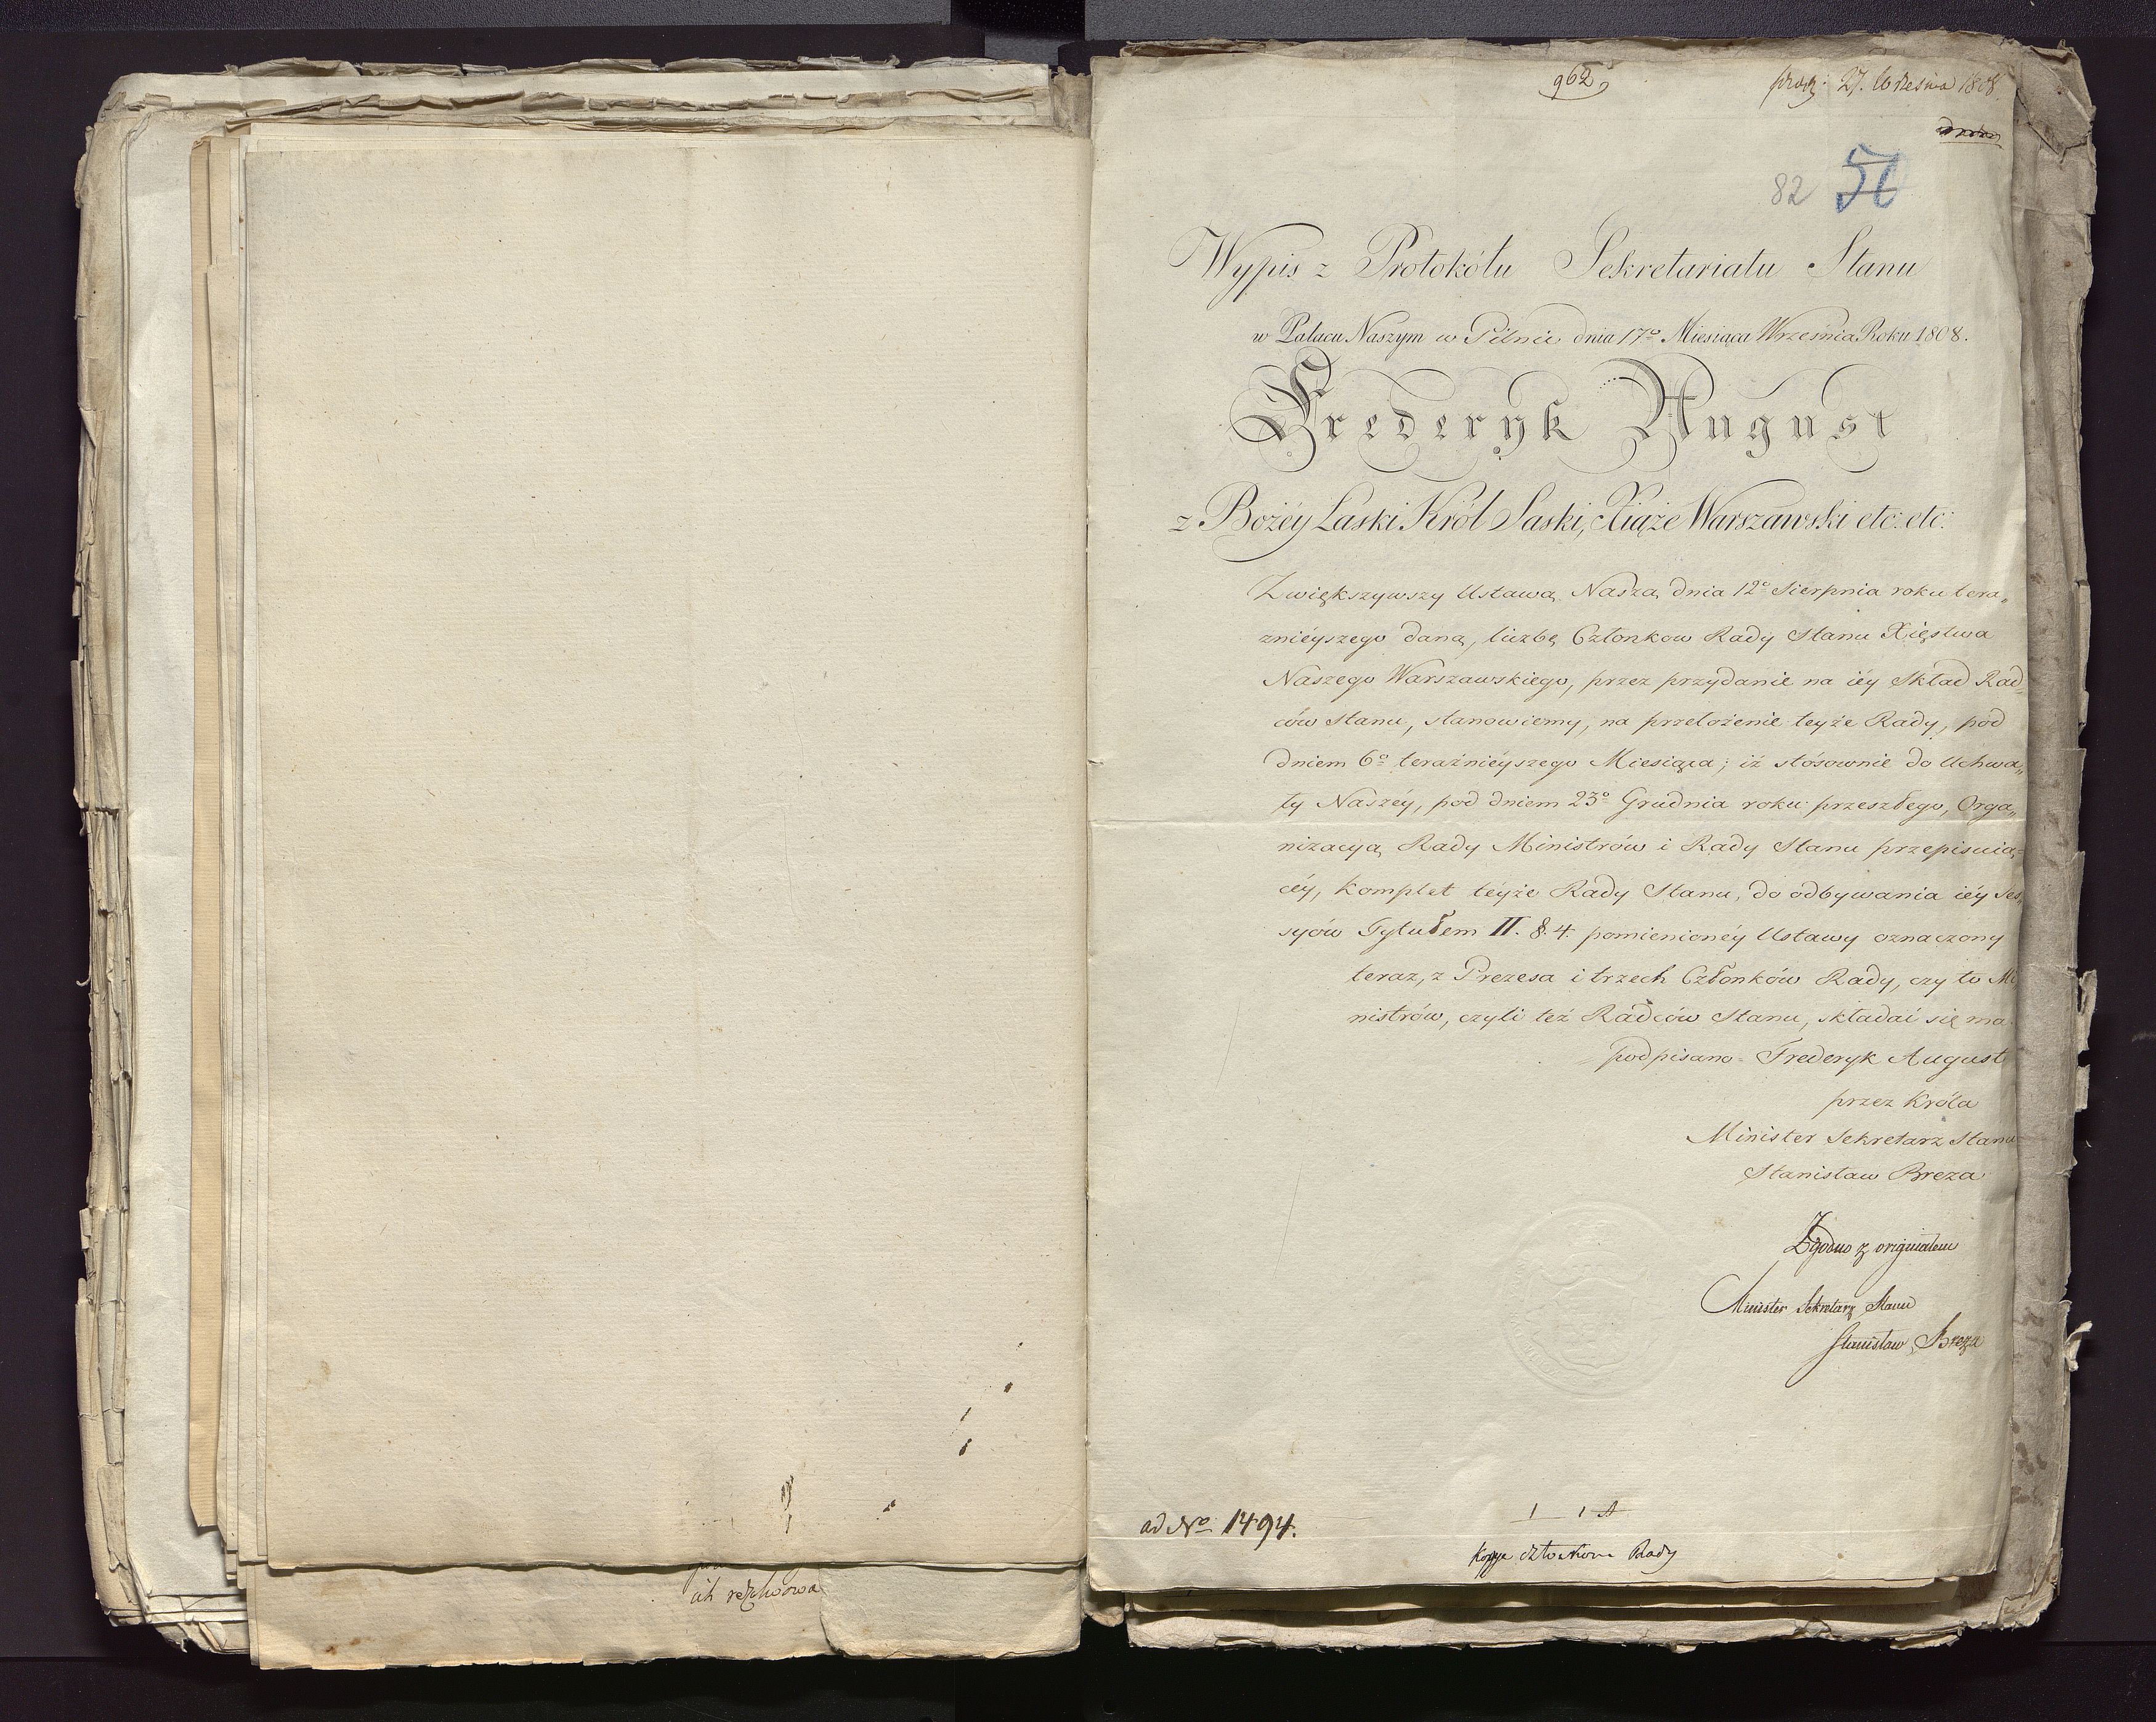 962
27. Września 1808
82 51
Wypis z Protokółu Sekretariatu Stanu
w Pałacu Naszym w Pilnic dnia 17º Miesiąca Września Roku 1808.
Frederyk August
z Bożéy Łaski Król Saski, Xiąże Warszawski etc: etc:
Zwiększywszy Ustawą Naszą dnia 12º Sierpnia roku tera„
zniéyszego daną, liczbę Członkow Rady Stanu Xięstwa
Naszego Warszawskiego, przez przydanie na iéy Skład Rad„
ców Stanu, stanowiemy, na przełożenie teyże Rady, pod
dniem 6º teraźniéyszego Miesiąca; iż stósownie do Uchwa„
ły Naszéy, pod dniem 23º Grudnia roku przeszłego, Orga„
nizacyą Rady Ministrów i Rady Stanu przepisuią„
céy, komplet téyże Rady Stanu, do odbywania iéy ses„
syów Tytułem II. §. 4. pomienionéy Ustawy oznaczony
teraz, z Prezesa i trzech Członków Rady, czy to Mi
nistrów, czyli też Radców Stanu, składać się ma
podpisano = Frederyk August
przez Króla
Minister Sekretarz Stanu
Stanisław Breza
Zgodno z originałem
Minister Sekretarz Stanu
Stanisław Breza
ad Nº 1494.
Kopje członkom Rady
ich